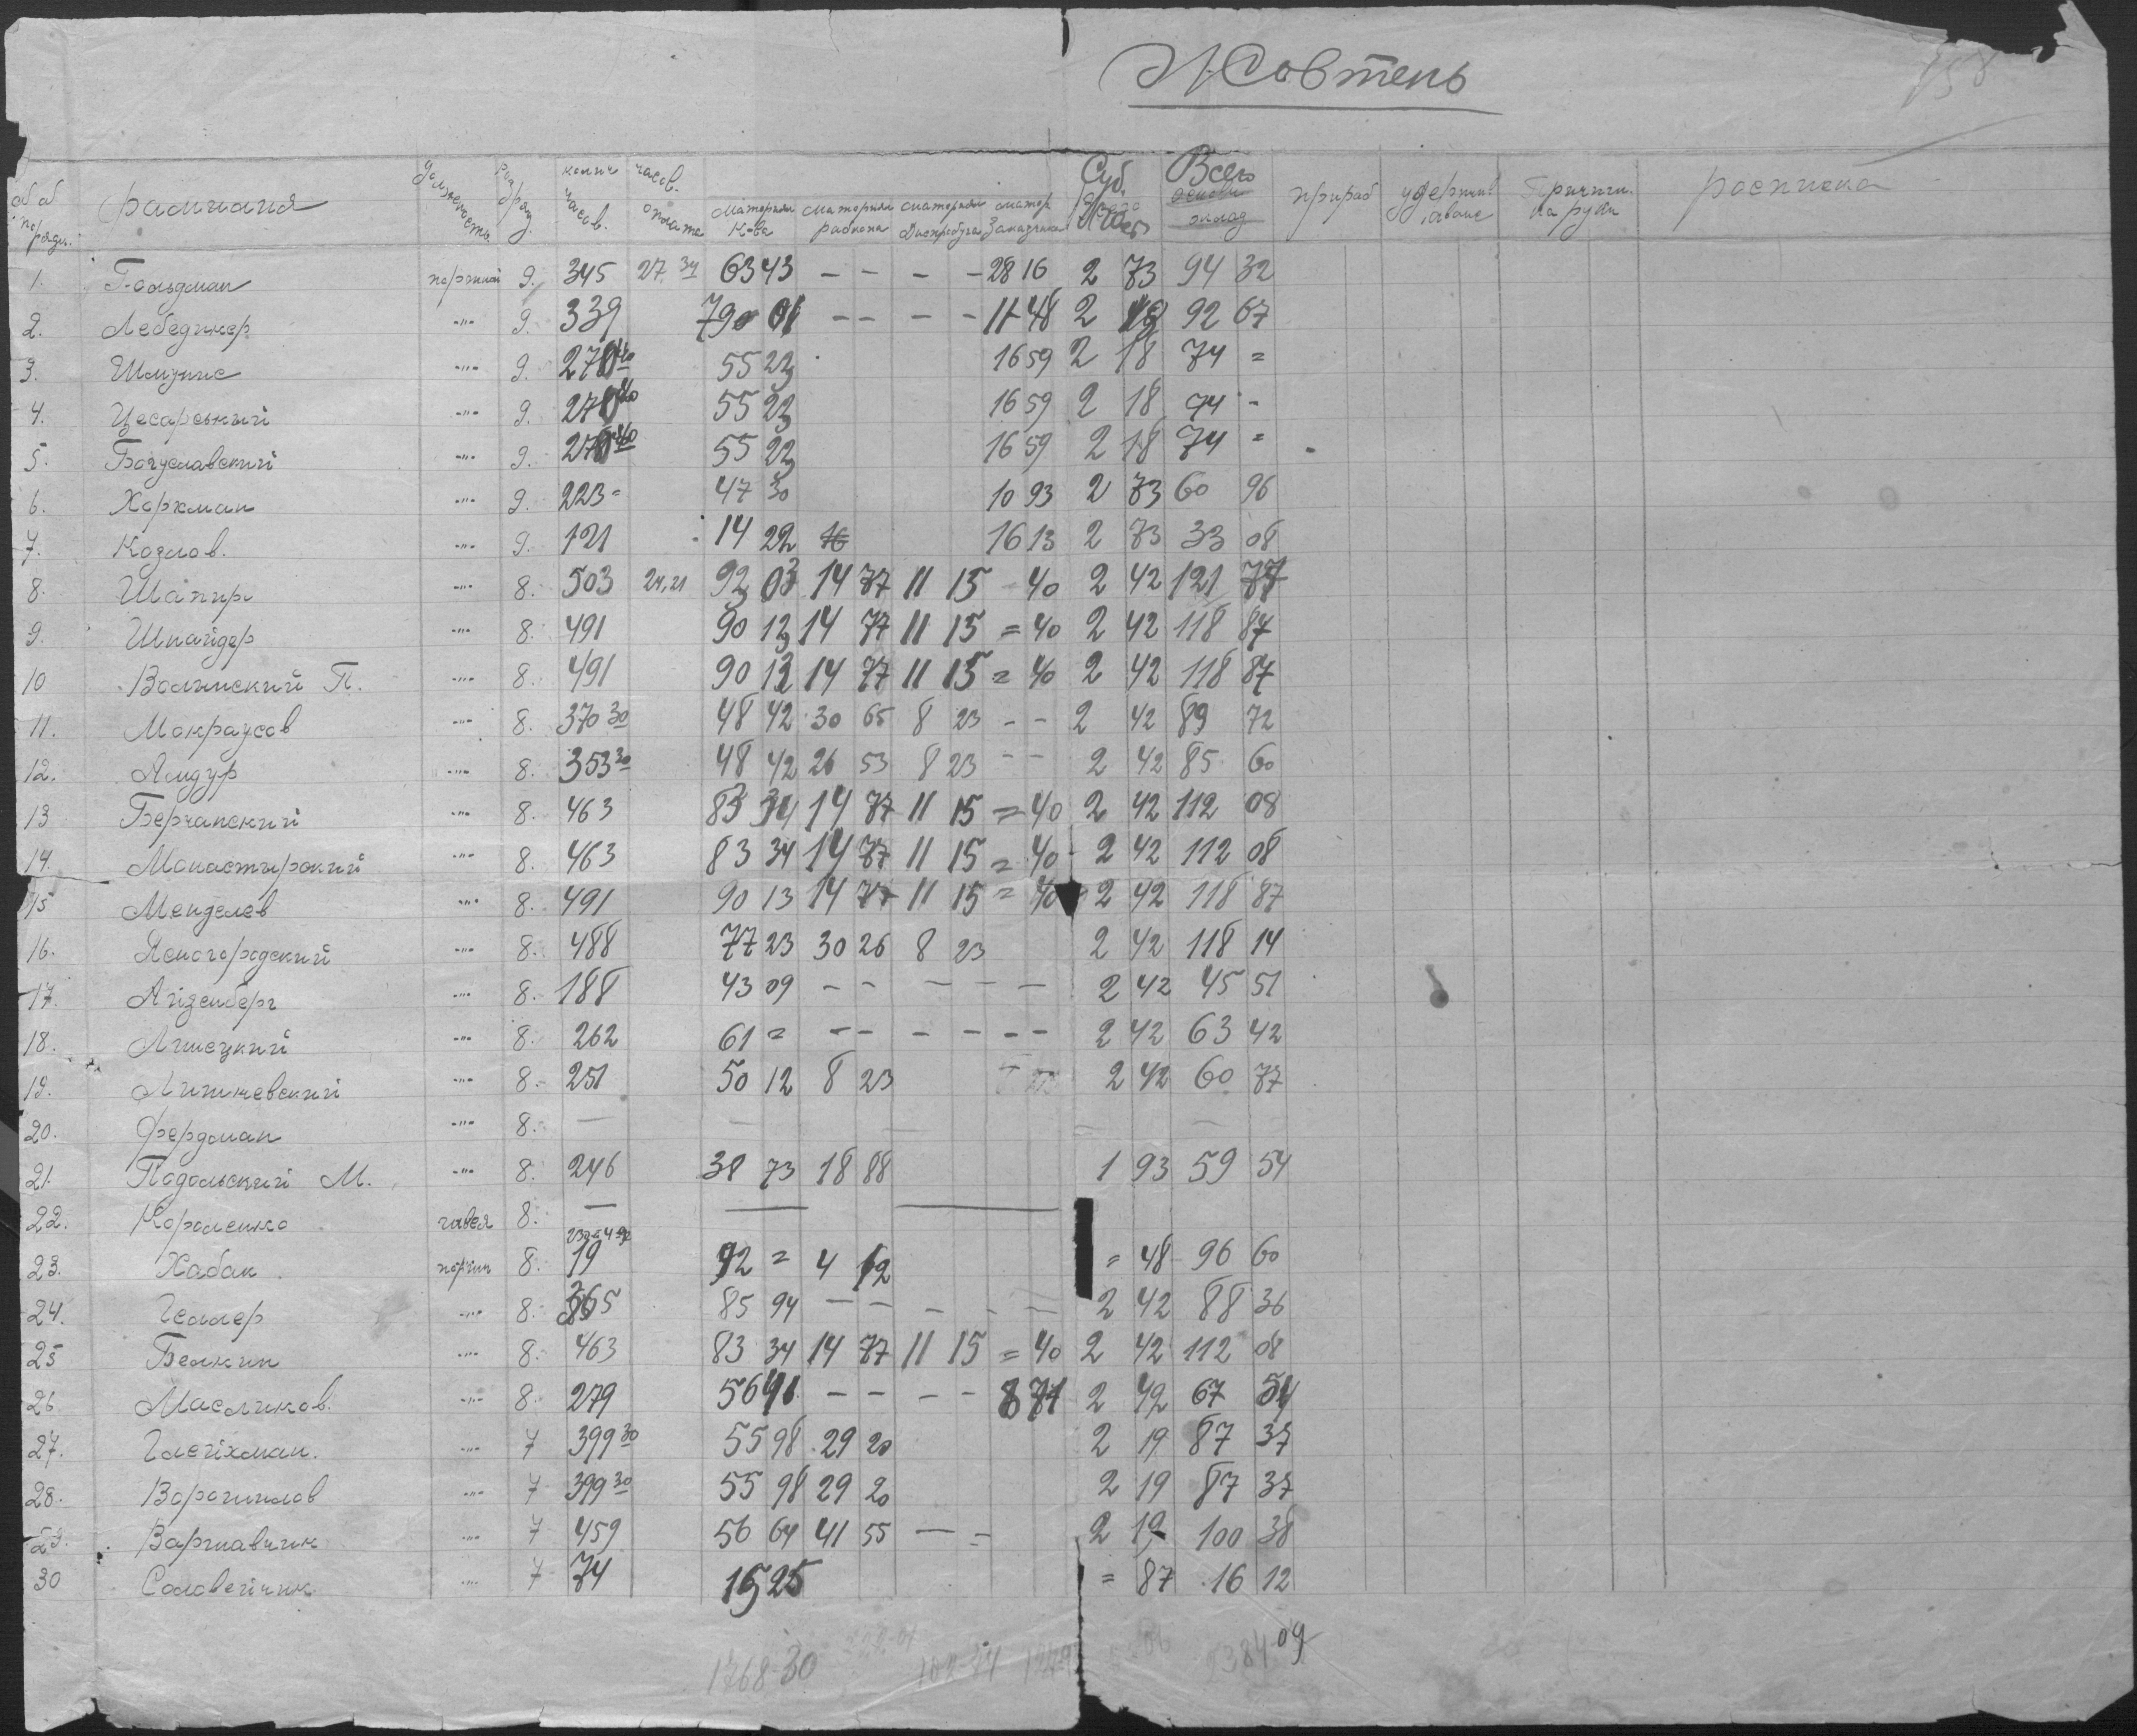 Жовтень
фамилия должность разряд колич часов. часов. оплата материал к-ва материал рабкопа материал матер Заказчика Суб. Всего прираб удержив. аванс Причит. на руки расписка
1. Гольдман портной 9. 345 27 34 63 43 – – – – 28 16 2 73 94 32
2. Лебединер -"- 9. 339 79 01 – – – – 11 48 2 18 92 67
3. Шмунис -"- 9. 270 40 55 23 16 59 2 18 74 =
4. Цесарський -"- 9. 270 40 55 23 16 59 2 18 74 -
5. Богуславский -"- 9. 270 40 55 23 16 59 2 18 74 =
6. Харкман -"- 9. 223 = 47 30 10 93 2 73 60 96
7. Козлов. -"- 9. 121 14 22 16 13 2 73 33 08
8. Шапир -"- 8. 503 24,21 92 03 14 77 11 15 - 40 2 42 121 77
9. Шнайдер -"- 8. 491 90 13 14 77 11 15 = 40 2 42 118 87
10 Волынский П. -"- 8. 491 90 13 14 77 11 15 = 40 2 42 118 87
11. Мокраусов -"- 8. 370 30 48 42 30 65 8 23 - - 2 42 89 72
12. Амдур -"- 8. 353 30 48 42 26 53 8 23 - - 2 42 85 60
13 Берчанский -"- 8. 463 83 34 14 77 11 15 = 40 2 42 112 08
14. Монастырский -"- 8. 463 83 34 14 77 11 15 = 40 2 42 112 08
15 Менделев -"- 8. 491 90 13 14 77 11 15 = 40 2 42 118 87
16. Ясногородский -"- 8. 488 77 23 30 26 8 23 2 42 118 14
17. Айзенберг -"- 8. 188 43 09 – – – – – 2 42 45 51
18. Липецкий -"- 8. 262 61 = – – – – – – 2 42 63 42
19. Литневский -"- 8. 251 50 12 8 23 2 42 60 77
20. Фердман -"- 8. —
21. Подольский М. -"- 8. 246 38 73 18 88 1 93 59 54
22. Короленко 8. —
23. Хабак. портн 8. 19 92 = 4 12 = 48 96 60
24. Геллер -"- 8. 365 85 94 – – – – – 2 42 88 36
25 Белкин -"- 8. 463 83 34 14 77 11 15 = 40 2 42 112 08
26 Масликов. -"- 8. 279 56 41 – – – – 8 71 2 42 67 54
27. Глейхман. -"- 7 399 30 55 98 29 20 2 19 87 37
28. Ворошилов -"- 7 399 30 55 98 29 20 2 19 87 37
29. Варшавчик -"- 7 459 56 64 41 55 — = 2 19 100 38
30 Соловейчик -"- 7 74 15 25 = 87 16 12
1768-30 2384 09